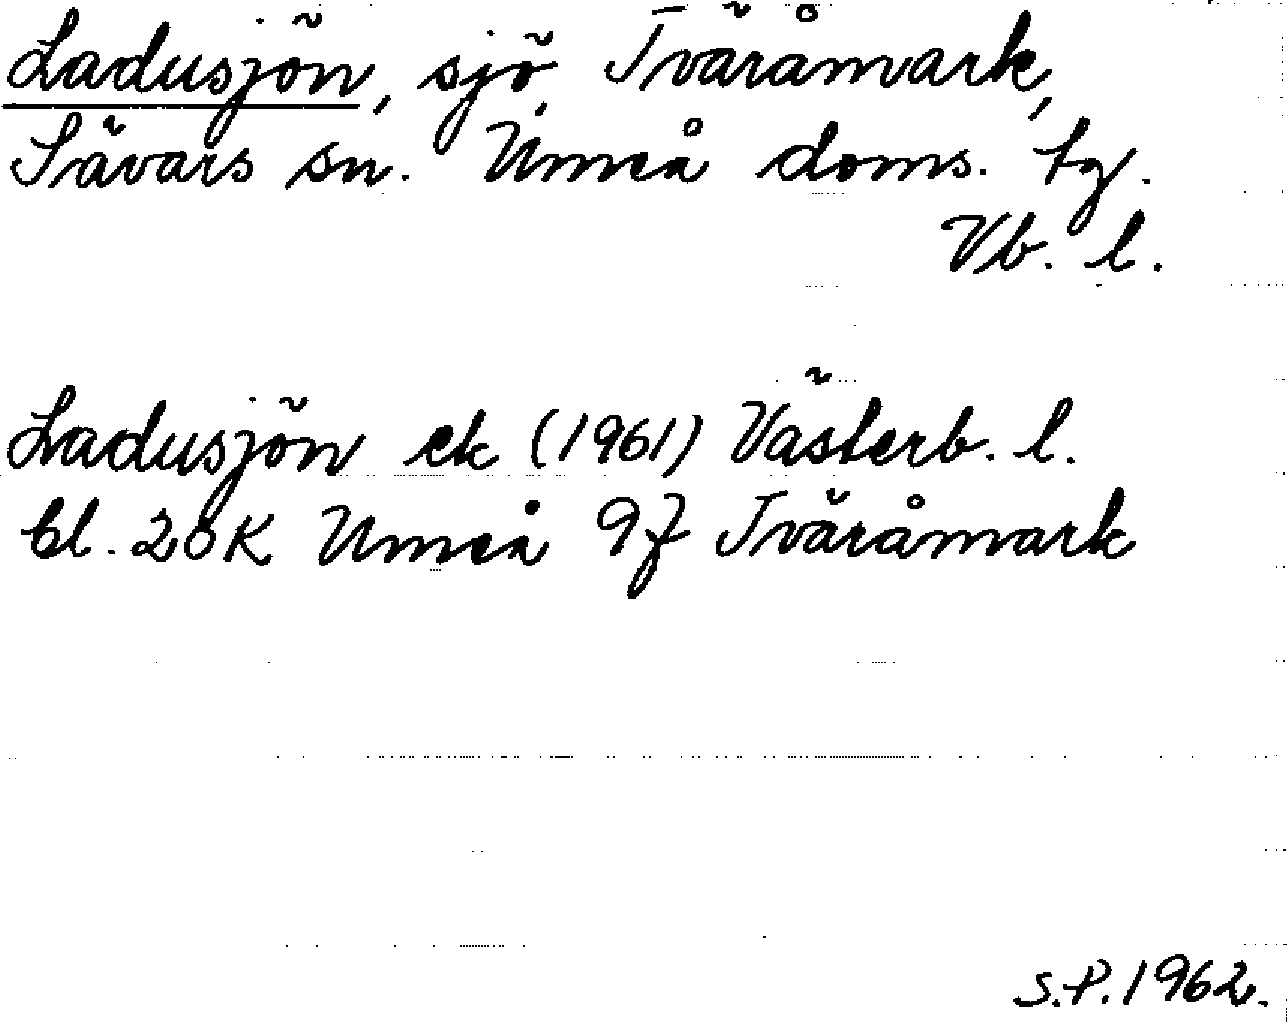 Ladusjön, sjö, Tväråmark,
Sävars sn. Umeå doms. tg.
Vb. l.
Ladusjön ek (1961) Västerb. l.
bl. 20K Umeå 9f Tväråmark
S.P. 1962.